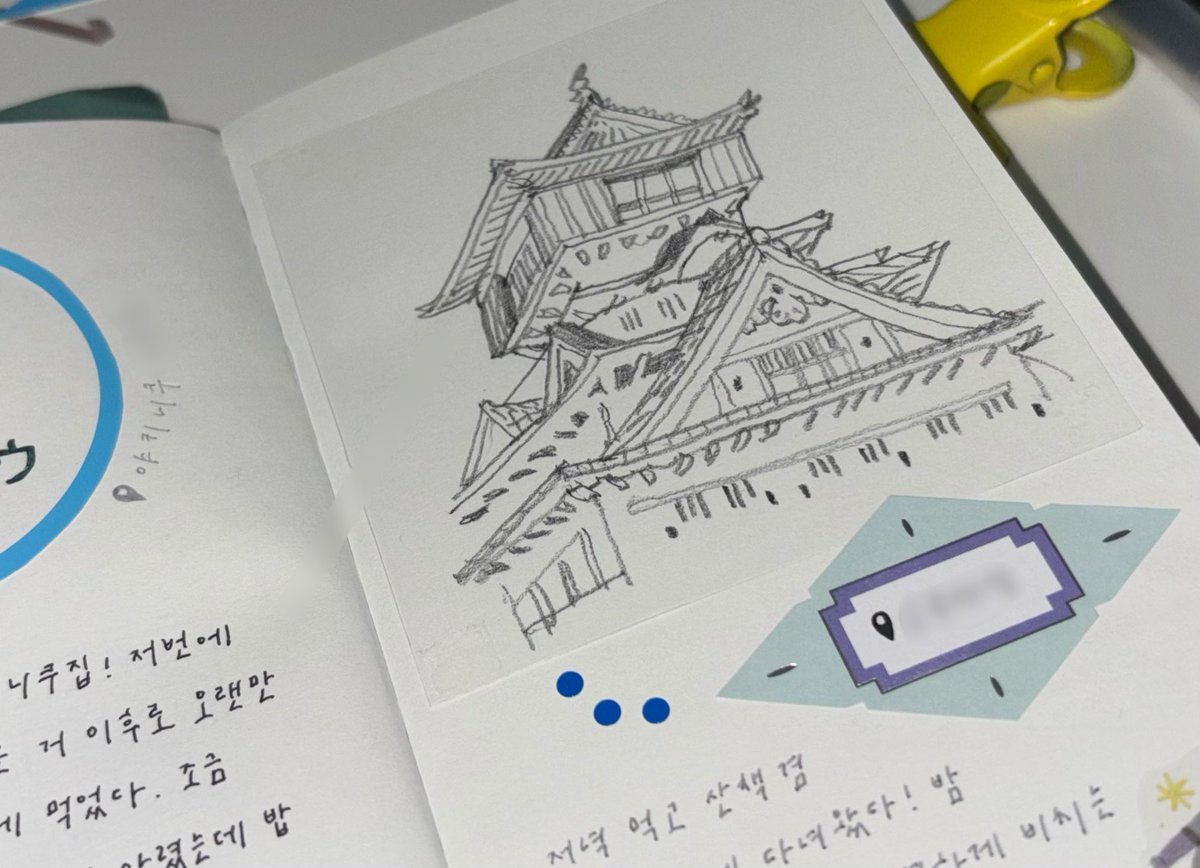 ウ
야키니쿠
니쿠집! 저번에
거 이후로 오랜만
먹었다. 조금
밥
저녁 먹고 산책 겸
다녀왔다! 밤
비치는